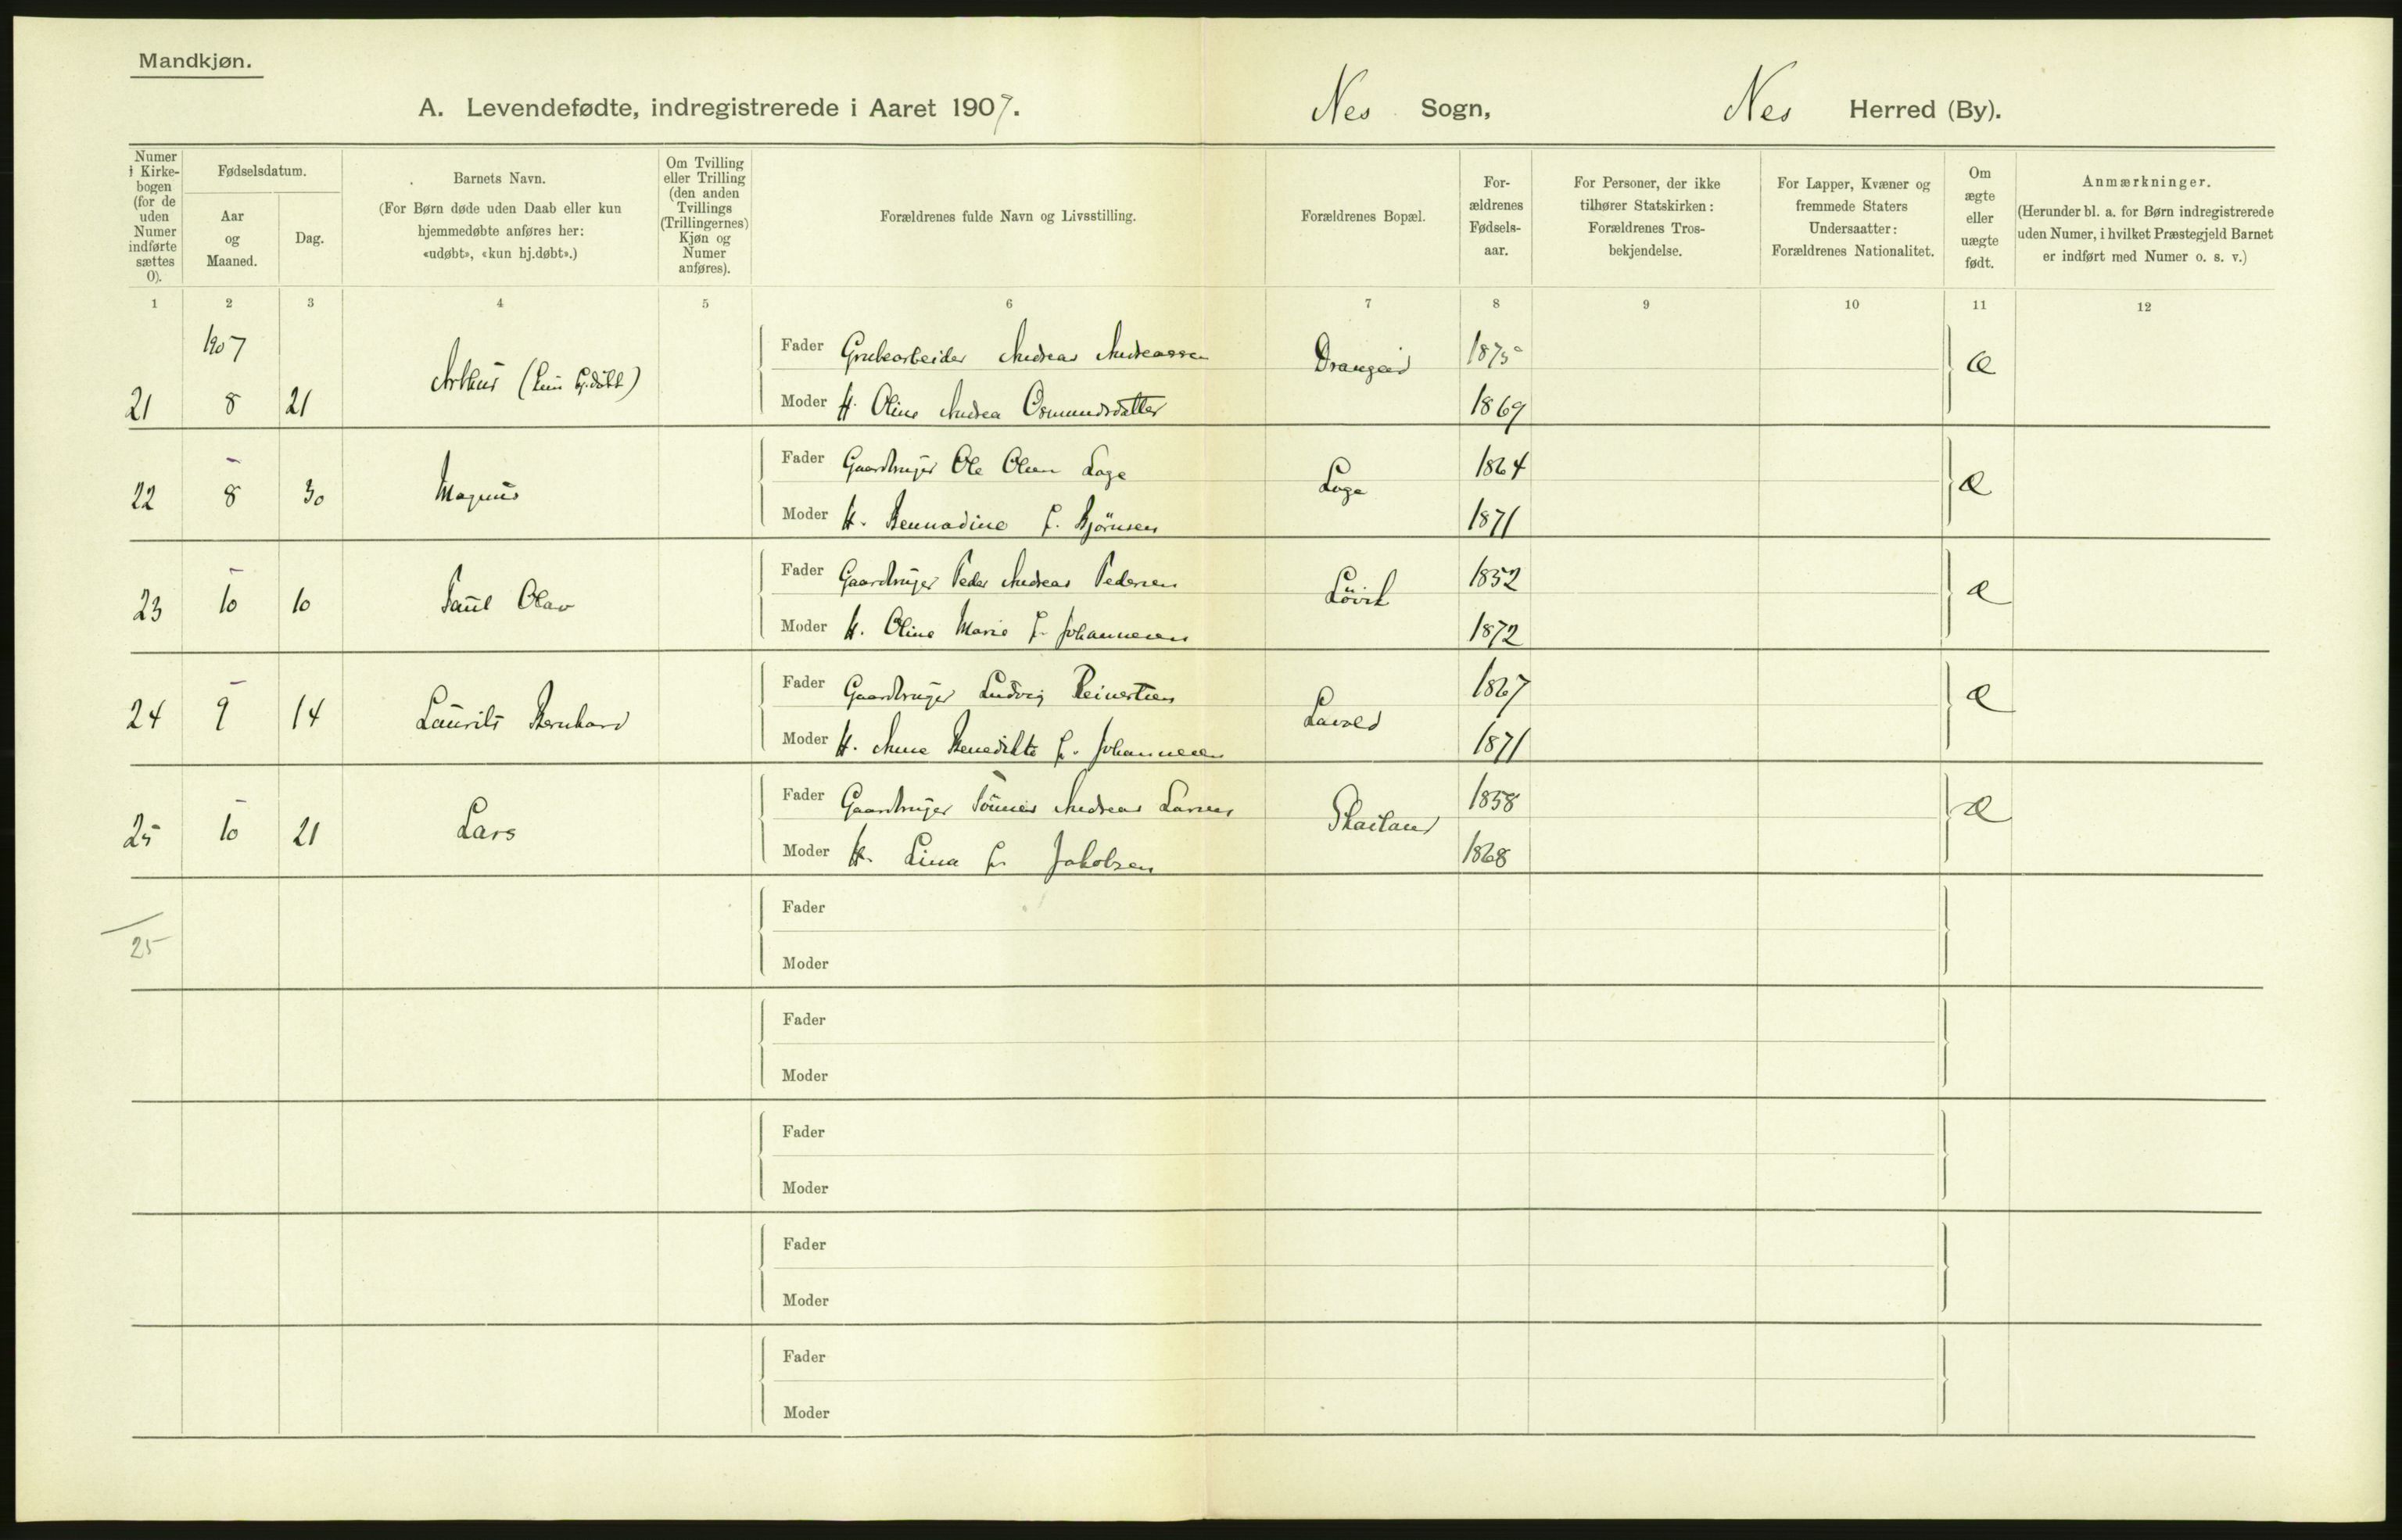 Mandkjøn.
A. Levendefødte, indregistrerede i Aaret 1907.
Nes Sogn,
Nes Herred (By).
Numer i Kirkebogen (for de uden Numer indførte sættes 0).
Fødselsdatum.
Aar og Maaned.
Dag.
Barnets Navn.
(For Børn døde uden Daab eller kun hjemmedøbte anføres her: «udøbt», «kun hj.døbt».)
Om Tvilling eller Trilling (den anden Tvillings (Trillingernes) Kjøn og Numer anføres).
Forældrenes fulde Navn og Livsstilling.
Forældrenes Bopæl.
For-ældrenes Fødsels-aar.
For Personer, der ikke tilhører Statskirken: Forældrenes Tros-bekjendelse.
For Lapper, Kvæner og fremmede Staters Undersaatter: Forældrenes Nationalitet.
Om ægte eller uægte født.
Anmærkninger.
(Herunder bl. a. for Børn indregistrerede uden Numer, i hvilket Præstegjeld Barnet er indført med Numer o. s. v.)
1 2 3 4 5 6 7 8 9 10 11 12
1907
21 8 21 Arthur (kun hj.døbt)
Fader Grubearbeider Andreas Andreassen Drangeid 1875 Æ
Moder H. Oline Andrea Osmundsdatter 1869
22 - 8 30 Magnus
Fader Gaardbruger Ole Olsen Loge Loge 1864 Æ
Moder H. Bernadine f. Bjørnsen 1871
23 - 10 10 Paul Olav
Fader Gaardbruger Peder Andreas Pedersen Lövik 1852 Æ
Moder H. Oline Marie f. Johannesen 1872
24 - 9 14 Laurits Bernhard
Fader Gaardbruger Ludvig Reinertsen 1867 Æ
Moder H. Anne Benedikte f. Johannesen 1871
25 - 10 21 Lars
Fader Gaardbruger Tönnes Andreas Larsen 1858 Æ
Moder H. Lina f. Jakobsen 1868
25
Fader
Moder
Fader
Moder
Fader
Moder
Fader
Moder
Fader
Moder